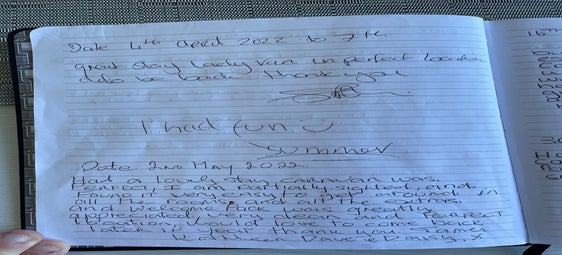 Date 4th April 2022 to 7th
great stay lovely van in perfect location
be back thank you
I had fun
Summer
Date 2nd May 2022
Had a lovely stay caravan was
perfect, I am partially sighted, and
found it very easy to get around in
all the rooms and all the extras
and welcome pack was greatly
appreciated, very clean and perfect
location, would love to come back
later in year thank you James
Kathleen Dave & Daisy x